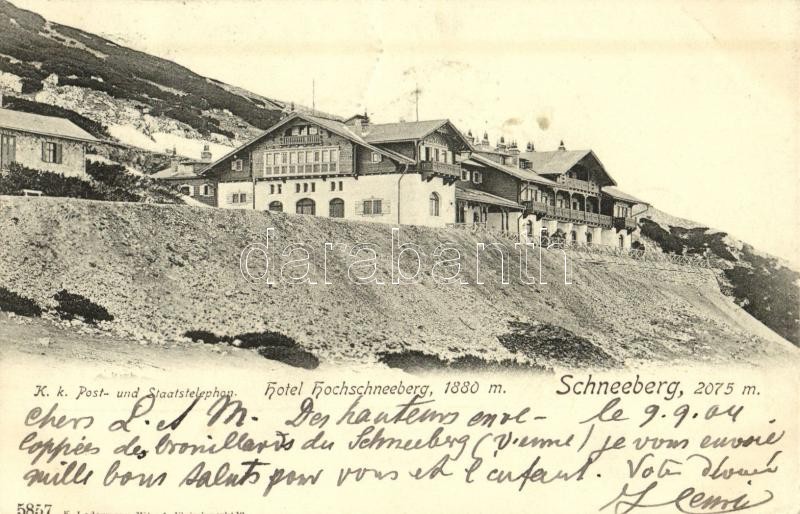 darabanth
K. k. Post- und Staatstelephon. Hotel Hochschneeberg, 1880 m. Schneeberg, 2075 m.
chers L. A M. Des hauteurs enve- le 9.9.04
loppées des brouillards du Schneeberg (Vienne) je vous envoie
mille bons saluts pour vous et l'enfant. Votre dévoué
Henri
5857